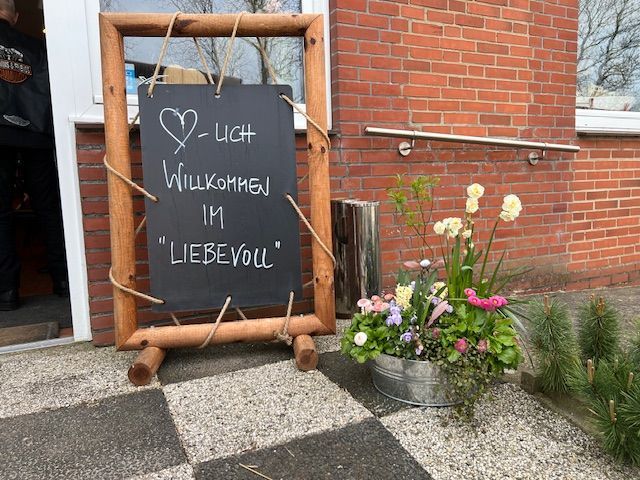 ♡-LICH
WILLKOMMEN
IM
"LIEBEVOLL"